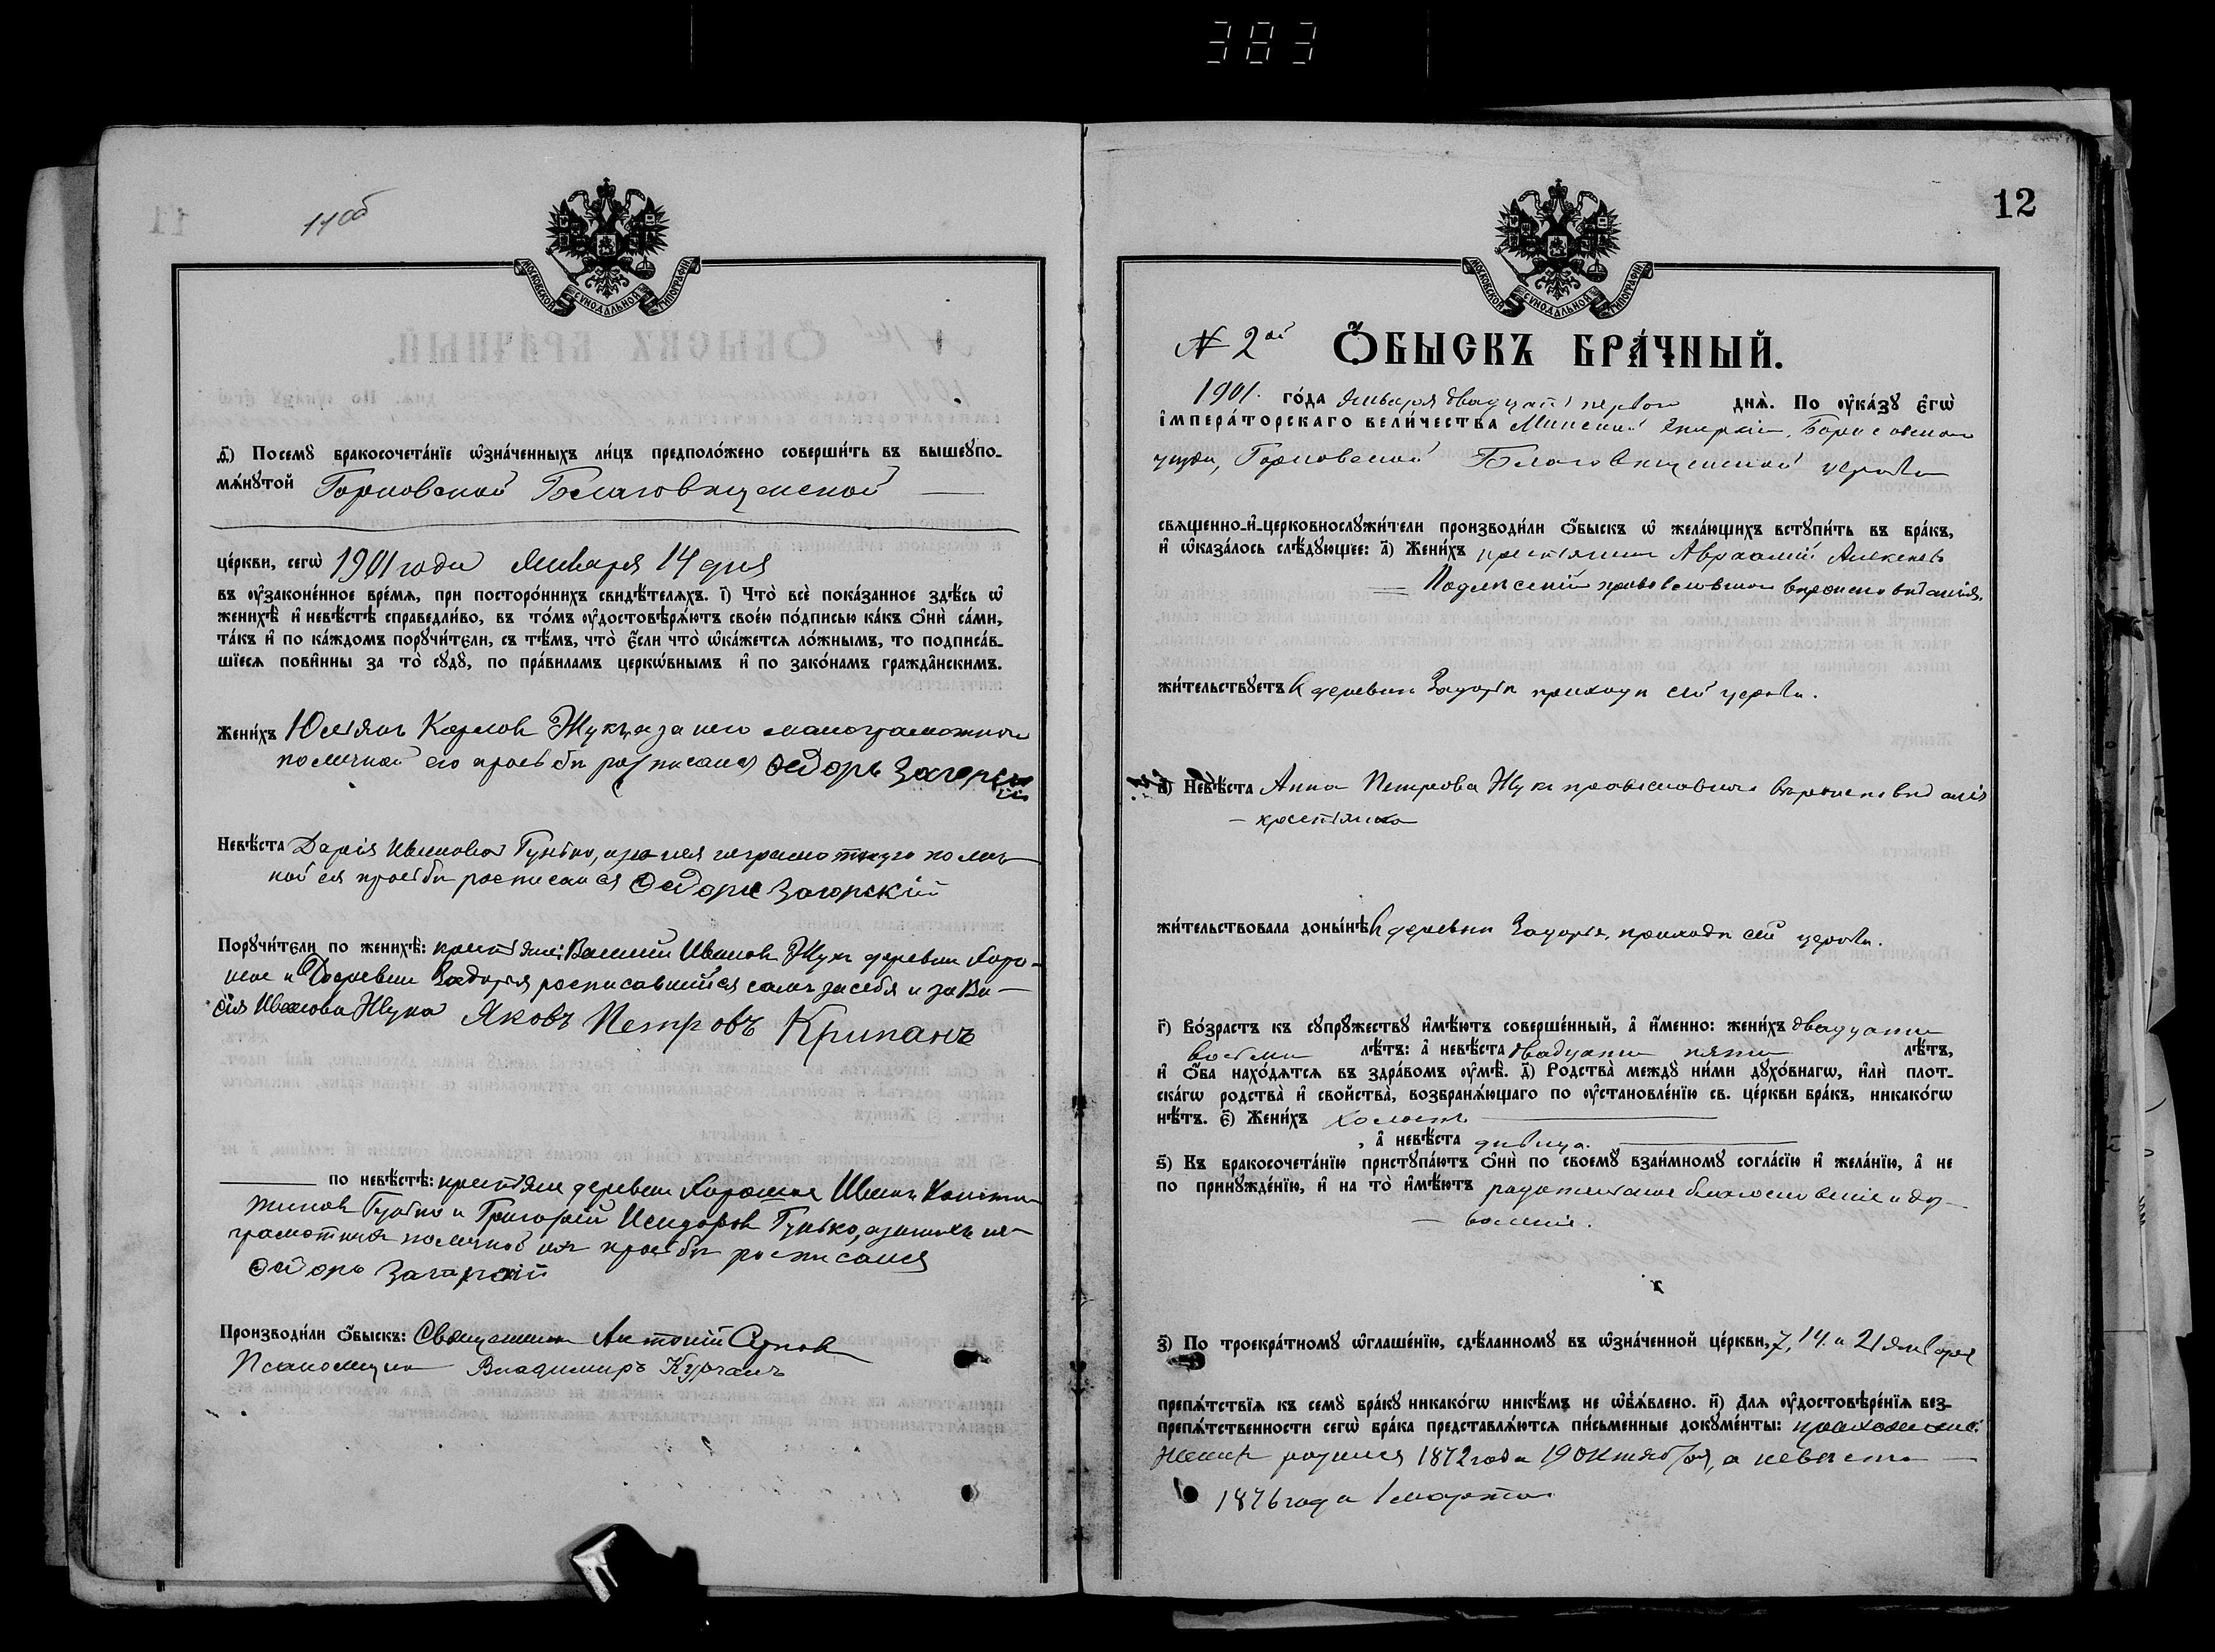 383
11об
МОСКОВСКОЙ СѴНОДАЛЬНОЙ ТИПОГРАФІИ
д҃) Посемꙋ бракосочета́нїе ѡ҆зна́ченныхъ ли́цъ предполо́жено соверши́ть въ вышеꙋпо-
мѧ́нꙋтой Горковской Благовѣщенской
це́ркви, сегѡ̀ 1901 года Января 14 дня
въ ᲂу҆законе́нное вре́мѧ, при посторо́ннихъ свидѣ́телѧхъ. і҃) Что̀ всѐ пока́занное здѣ́сь ѡ҆
женихѣ̀ и҆ невѣ́стѣ справедли́во, въ то́мъ ᲂу҆достовѣрѧ́ютъ свое́ю по́дписью ка́къ ѻ҆нѝ са́ми,
та́къ и҆ по ка́ждомъ порꙋчи́тели, съ тѣ́мъ, что̀ є҆́сли что̀ ѡ҆ка́жетсѧ ло́жнымъ, то подписа́в-
шїесѧ пови́нны за то̀ сꙋдꙋ̀, по пра́виламъ церкѡ́внымъ и҆ по зако́намъ гражда́нскимъ.
Жени́хъ Юліянъ Карлов Жукъ, а за него малограмотнаго
по личной его просьбѣ росписался Ѳедоръ Загорскій
Невѣ́ста Дарія Иванова Гунько, а за нея неграмотную по лич-
ной ея просьбѣ росписался Ѳедоръ Загорскій
Порꙋчи́тели по женихѣ̀: крестьяне: Василій Иванов Жукъ деревни Хоро-
шое и деревни Задорья росписавшійся самъ за себя и за Ва-
силія Иванова Жука Яковъ Петровъ Крипанъ
по невѣ́стѣ: крестьяне деревни Хорошое Иванъ
Гунько и Григорій Исидоров Гунько, а за нихъ не-
грамотныхъ по личной ихъ просьбѣ росписался
Ѳедоръ Загорскій
Производи́ли ѻ҆́быскъ: Священникъ Антоній
Псаломщикъ Владимиръ Курчанъ
12
МОСКОВСКОЙ СѴНОДАЛЬНОЙ ТИПОГРАФІИ
№ 2ой Ѻ҆́БЫСКЪ БРА́ЧНЫЙ.
1901. го́да Января двадцать перваго днѧ̀. По ᲂу҆ка́зꙋ є҆гѡ̀
і҆мпера́торскаго вели́чества Минской Епархіи, Борисовскаго
уѣзда, Горковской Благовѣщенской церкви
свѧщенно-и҆-церковнослꙋжи́тели производи́ли ѻ҆́быскъ ѡ҆ жела́ющихъ встꙋпи́ть въ бра́къ,
и҆ ѡ҆каза́лось слѣ́дꙋющее: а҃) Жени́хъ крестьянинъ Авраамій Алексѣевъ
православнаго вѣроисповѣданія,
жи́тельствꙋетъ въ деревнѣ Задорьѣ прихода сей церкви.
в҃) Невѣ́ста Анна Петрова Жукъ православнаго вѣроисповѣданія
крестьянка
жи́тельствовала доны́нѣ въ деревнѣ Задорьѣ, прихода сей церкви.
г҃) Во́зрастъ къ сꙋпрꙋ́жествꙋ и҆мѣ́ютъ соверше́нный, а҆ и҆́менно: жени́хъ двадцати
восьми лѣ́тъ: а҆ невѣ́ста двадцати пяти лѣ́тъ,
и҆ ѻ҆́ба нахо́дѧтсѧ въ здра́вомъ ᲂу҆мѣ̀. д҃) Родства̀ междꙋ ни́ми дꙋхо́внагѡ, и҆лѝ плот-
ска́гѡ родства̀ и҆ сво́йства̀, возбранѧ́ющаго по ᲂу҆становле́нїю св. це́ркви бра́къ, никако́гѡ
нѣ́тъ. є҃) Жени́хъ холостъ
, а҆ невѣ́ста дѣвица.
ѕ҃) Къ бракосочета́нїю пристꙋпа́ютъ ѻ҆нѝ по своемꙋ̀ взаи́мномꙋ согла́сїю и҆ жела́нїю, а҆ не
по принꙋжде́нїю, и҆ на то̀ и҆мѣ́ютъ родительское благословеніе и до-
зволеніе.
з҃) По троекра́тномꙋ ѡ҆глаше́нїю, сдѣ́ланномꙋ въ ѡ҆зна́ченной це́ркви, 7, 14 и 21 января
препѧ́тствїѧ къ семꙋ̀ бра́кꙋ никако́гѡ никѣ́мъ не ѡ҆б̾ѧ́влено. и҃) Длѧ ᲂу҆достовѣре́нїѧ без-
препѧ́тственности сегѡ̀ бра́ка представлѧ́ютсѧ пи́сьменные докꙋме́нты:
Женихъ родился 1872 года 19 Октября, а невѣста
1876 года 1 марта